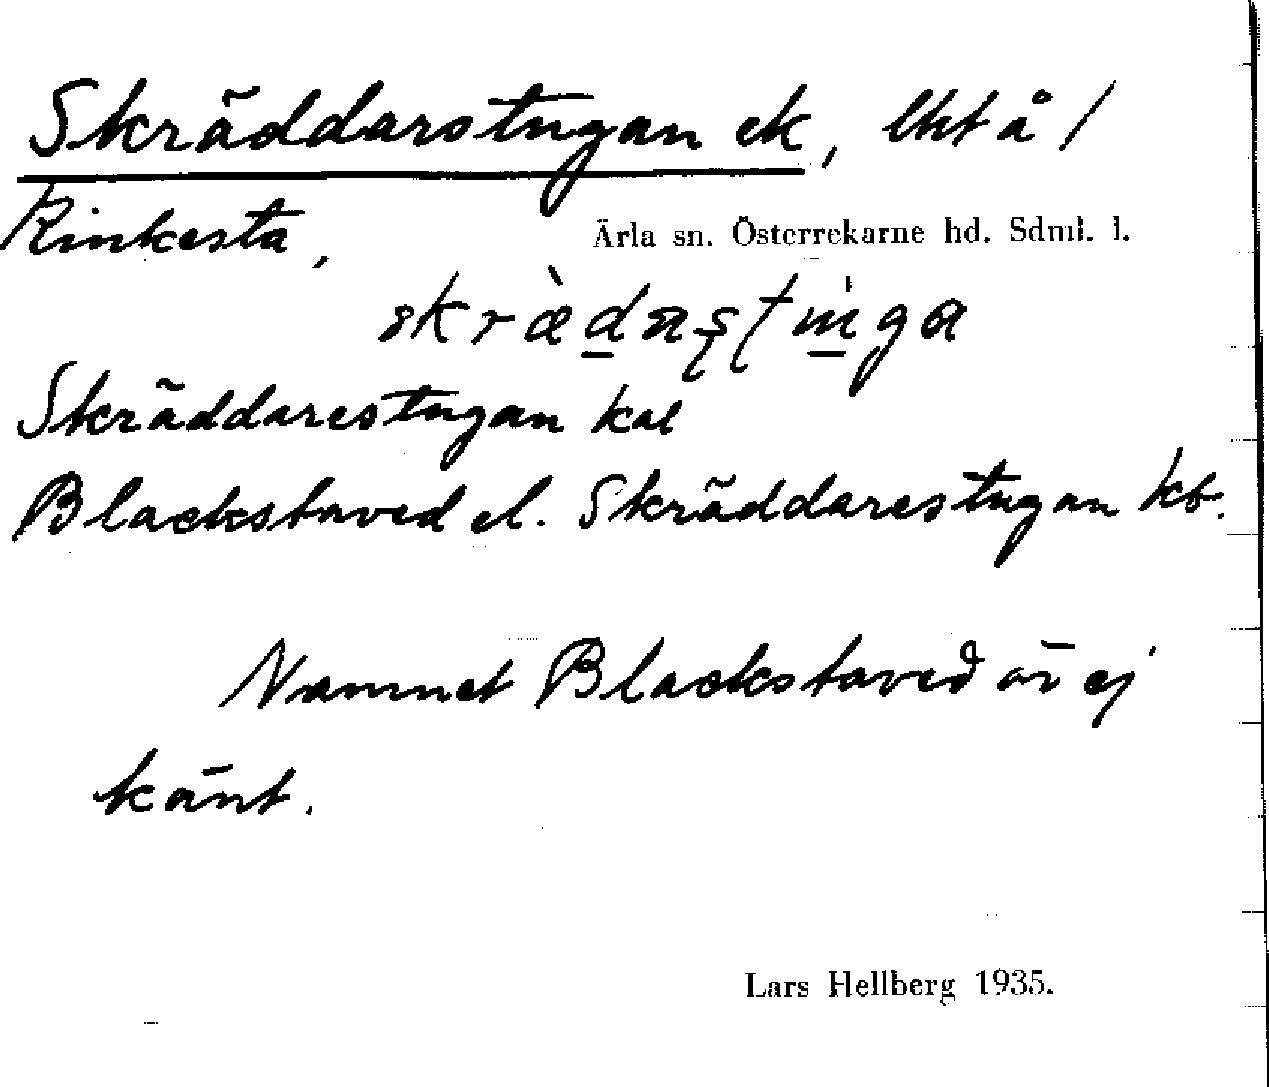 Skräddarstugan ek, lht å /
Rinkesta,
Ärla sn. Österrekarne hd. Sdml. l.
Skräddarestugan kal
Blackstaved el. Skräddarestugan kb.
Namnet Blackstaved är ej
känt.
Lars Hellberg 1935.